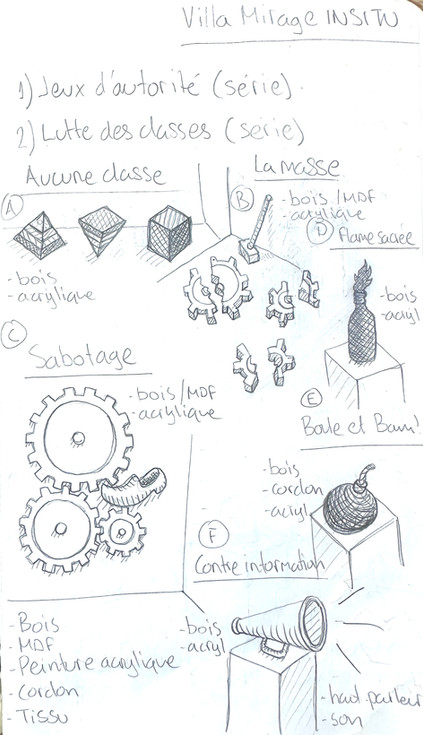 Villa Mirage INSITU
1) Jeux d'autorité (série).
2) Lutte des classes (série)
Aucune classe
A
- bois
- acrylique
La masse
B
- bois / MDF
- acrylique
D
Flame sacrée
- bois
- acryl
C
Sabotage
- bois / MDF
- acrylique
E
Boule et Bam!
- bois
- cordon
- acryl
F
Contre information
- bois
- acryl
- haut parleur
- son
- Bois
- MDF
- Peinture acrylique
- Cordon
- Tissu